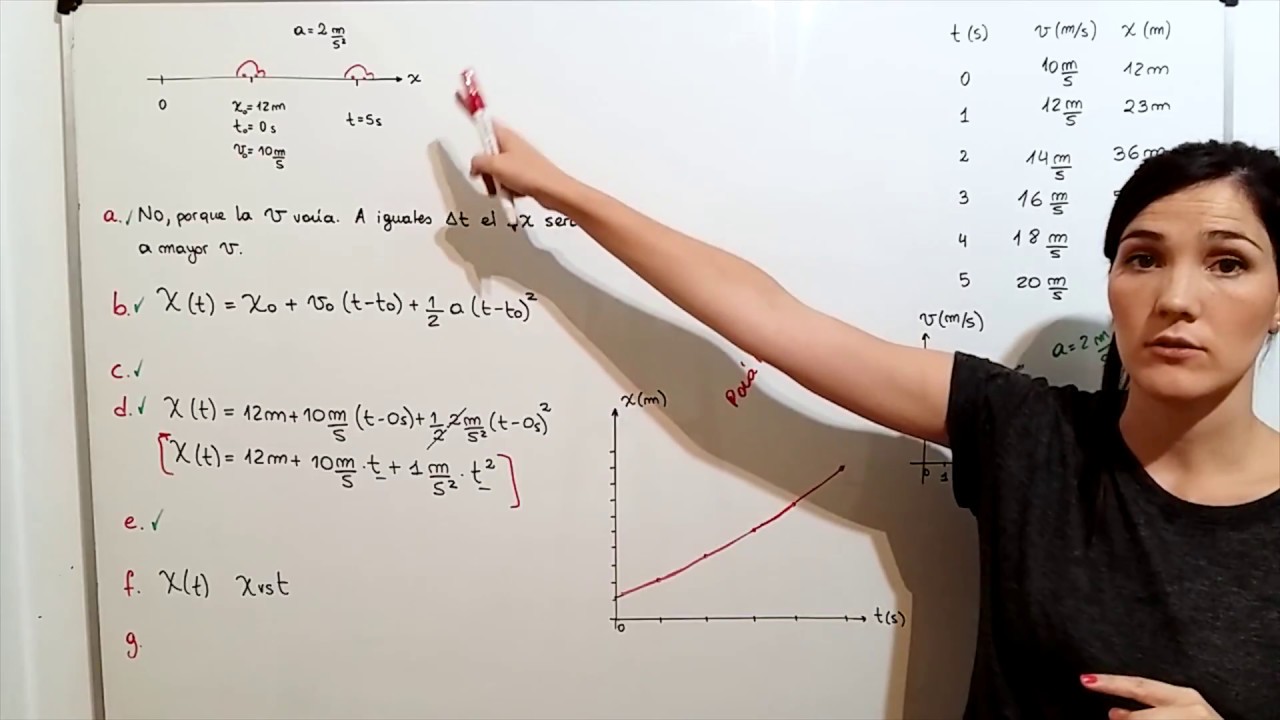 a = 2 m/s²
x
0
x₀ = 12m
t₀ = 0s
v₀ = 10 m/s
t = 5s
a. No, porque la v varía. A iguales Δt el x será
a mayor v.
b. ✓ X(t) = x₀ + v₀ (t-t₀) + 1/2 a (t-t₀)²
c. ✓
d. ✓ X(t) = 12m + 10 m/s (t-0s) + 1/2 2 m/s² (t-0s)²
[X(t) = 12m + 10 m/s · t + 1 m/s² · t²]
e. ✓
f. X(t) x vs t
g.
t (s) v (m/s) x (m)
0 10 m/s 12m
1 12 m/s 23m
2 14 m/s 36m
3 16 m/s
4 18 m/s
5 20 m/s
v (m/s)
a = 2 m
0 1
x (m)
0
t (s)